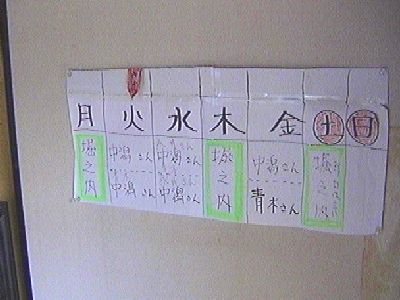 月 火 水 木 金 土 日
堀之内
中潟さん
中潟さん
中潟さん
中潟さん
堀之内
中潟さん
青木さん
堀之内